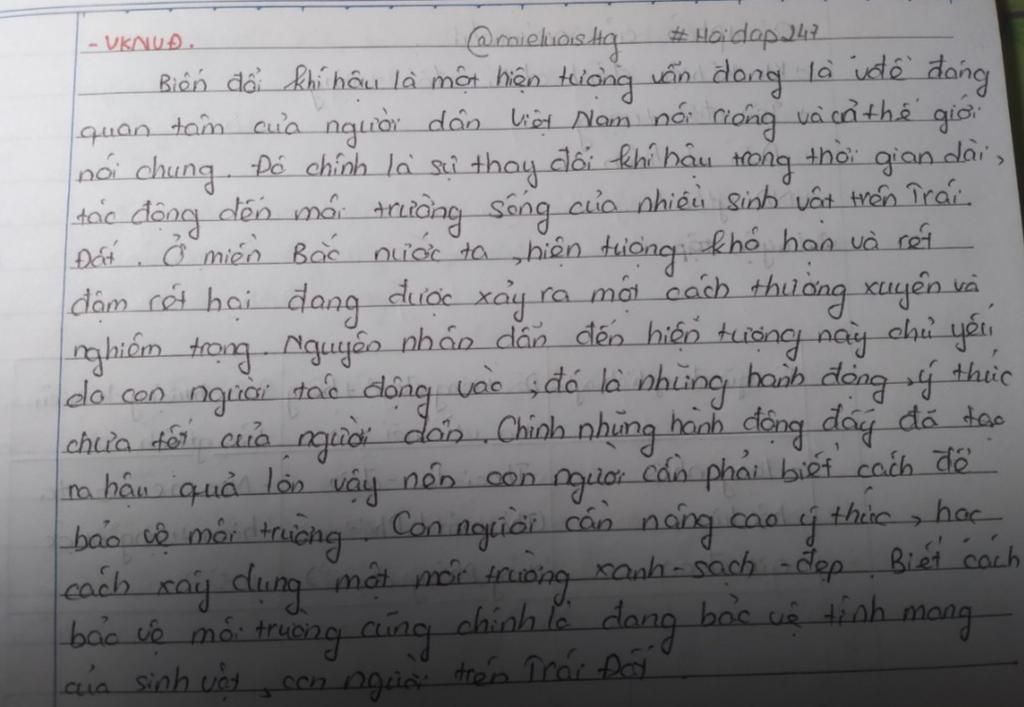 - VKNUĐ. @mieluoisHg #Hoidap247
Biến đổi khí hậu là một hiện tượng vẫn đang là vđề đáng
quan tâm của người dân Việt Nam nói riêng và cả thế giới
nói chung. Đó chính là sự thay đổi khí hậu trong thời gian dài,
tác động đến môi trường sống của nhiều sinh vật trên Trái
Đất. Ở miền Bắc nước ta, hiện tượng khô hạn và rét
đậm rét hại đang được xảy ra một cách thường xuyên và
nghiêm trọng. Nguyên nhân dẫn đến hiện tượng này chủ yếu
do con người tác động vào, đó là những hành động, ý thức
chưa tốt của người dân. Chính những hành động đấy đã tạo
ra hậu quả lớn vậy nên con người cần phải biết cách để
bảo vệ môi trường. Con người cần nâng cao ý thức, học
cách xây dựng một môi trường xanh-sạch-đẹp. Biết cách
bảo vệ môi trường cũng chính là đang bảo vệ tính mạng
của sinh vật, con người trên Trái Đất